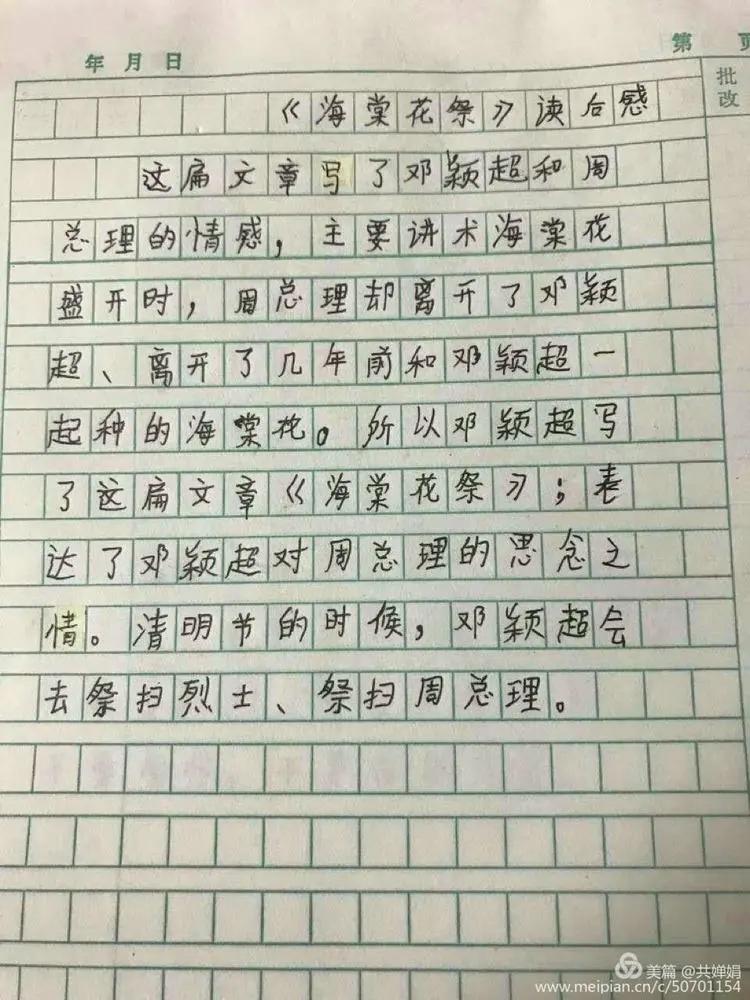 年 月 日
第 页
批改
《海棠花祭》读后感
这扁文章写了邓颖超和周
总理的情感，主要讲术海棠花
盛开时，周总理却离开了邓颖
超、离开了几年前和邓颖超一
起种的海棠花。所以邓颖超写
了这扁文章《海棠花祭》；表
达了邓颖超对周总理的思念之
情。清明节的时候，邓颖超会
去祭扫烈士、祭扫周总理。
美篇 @共婵娟
www.meipian.cn/c/50701154